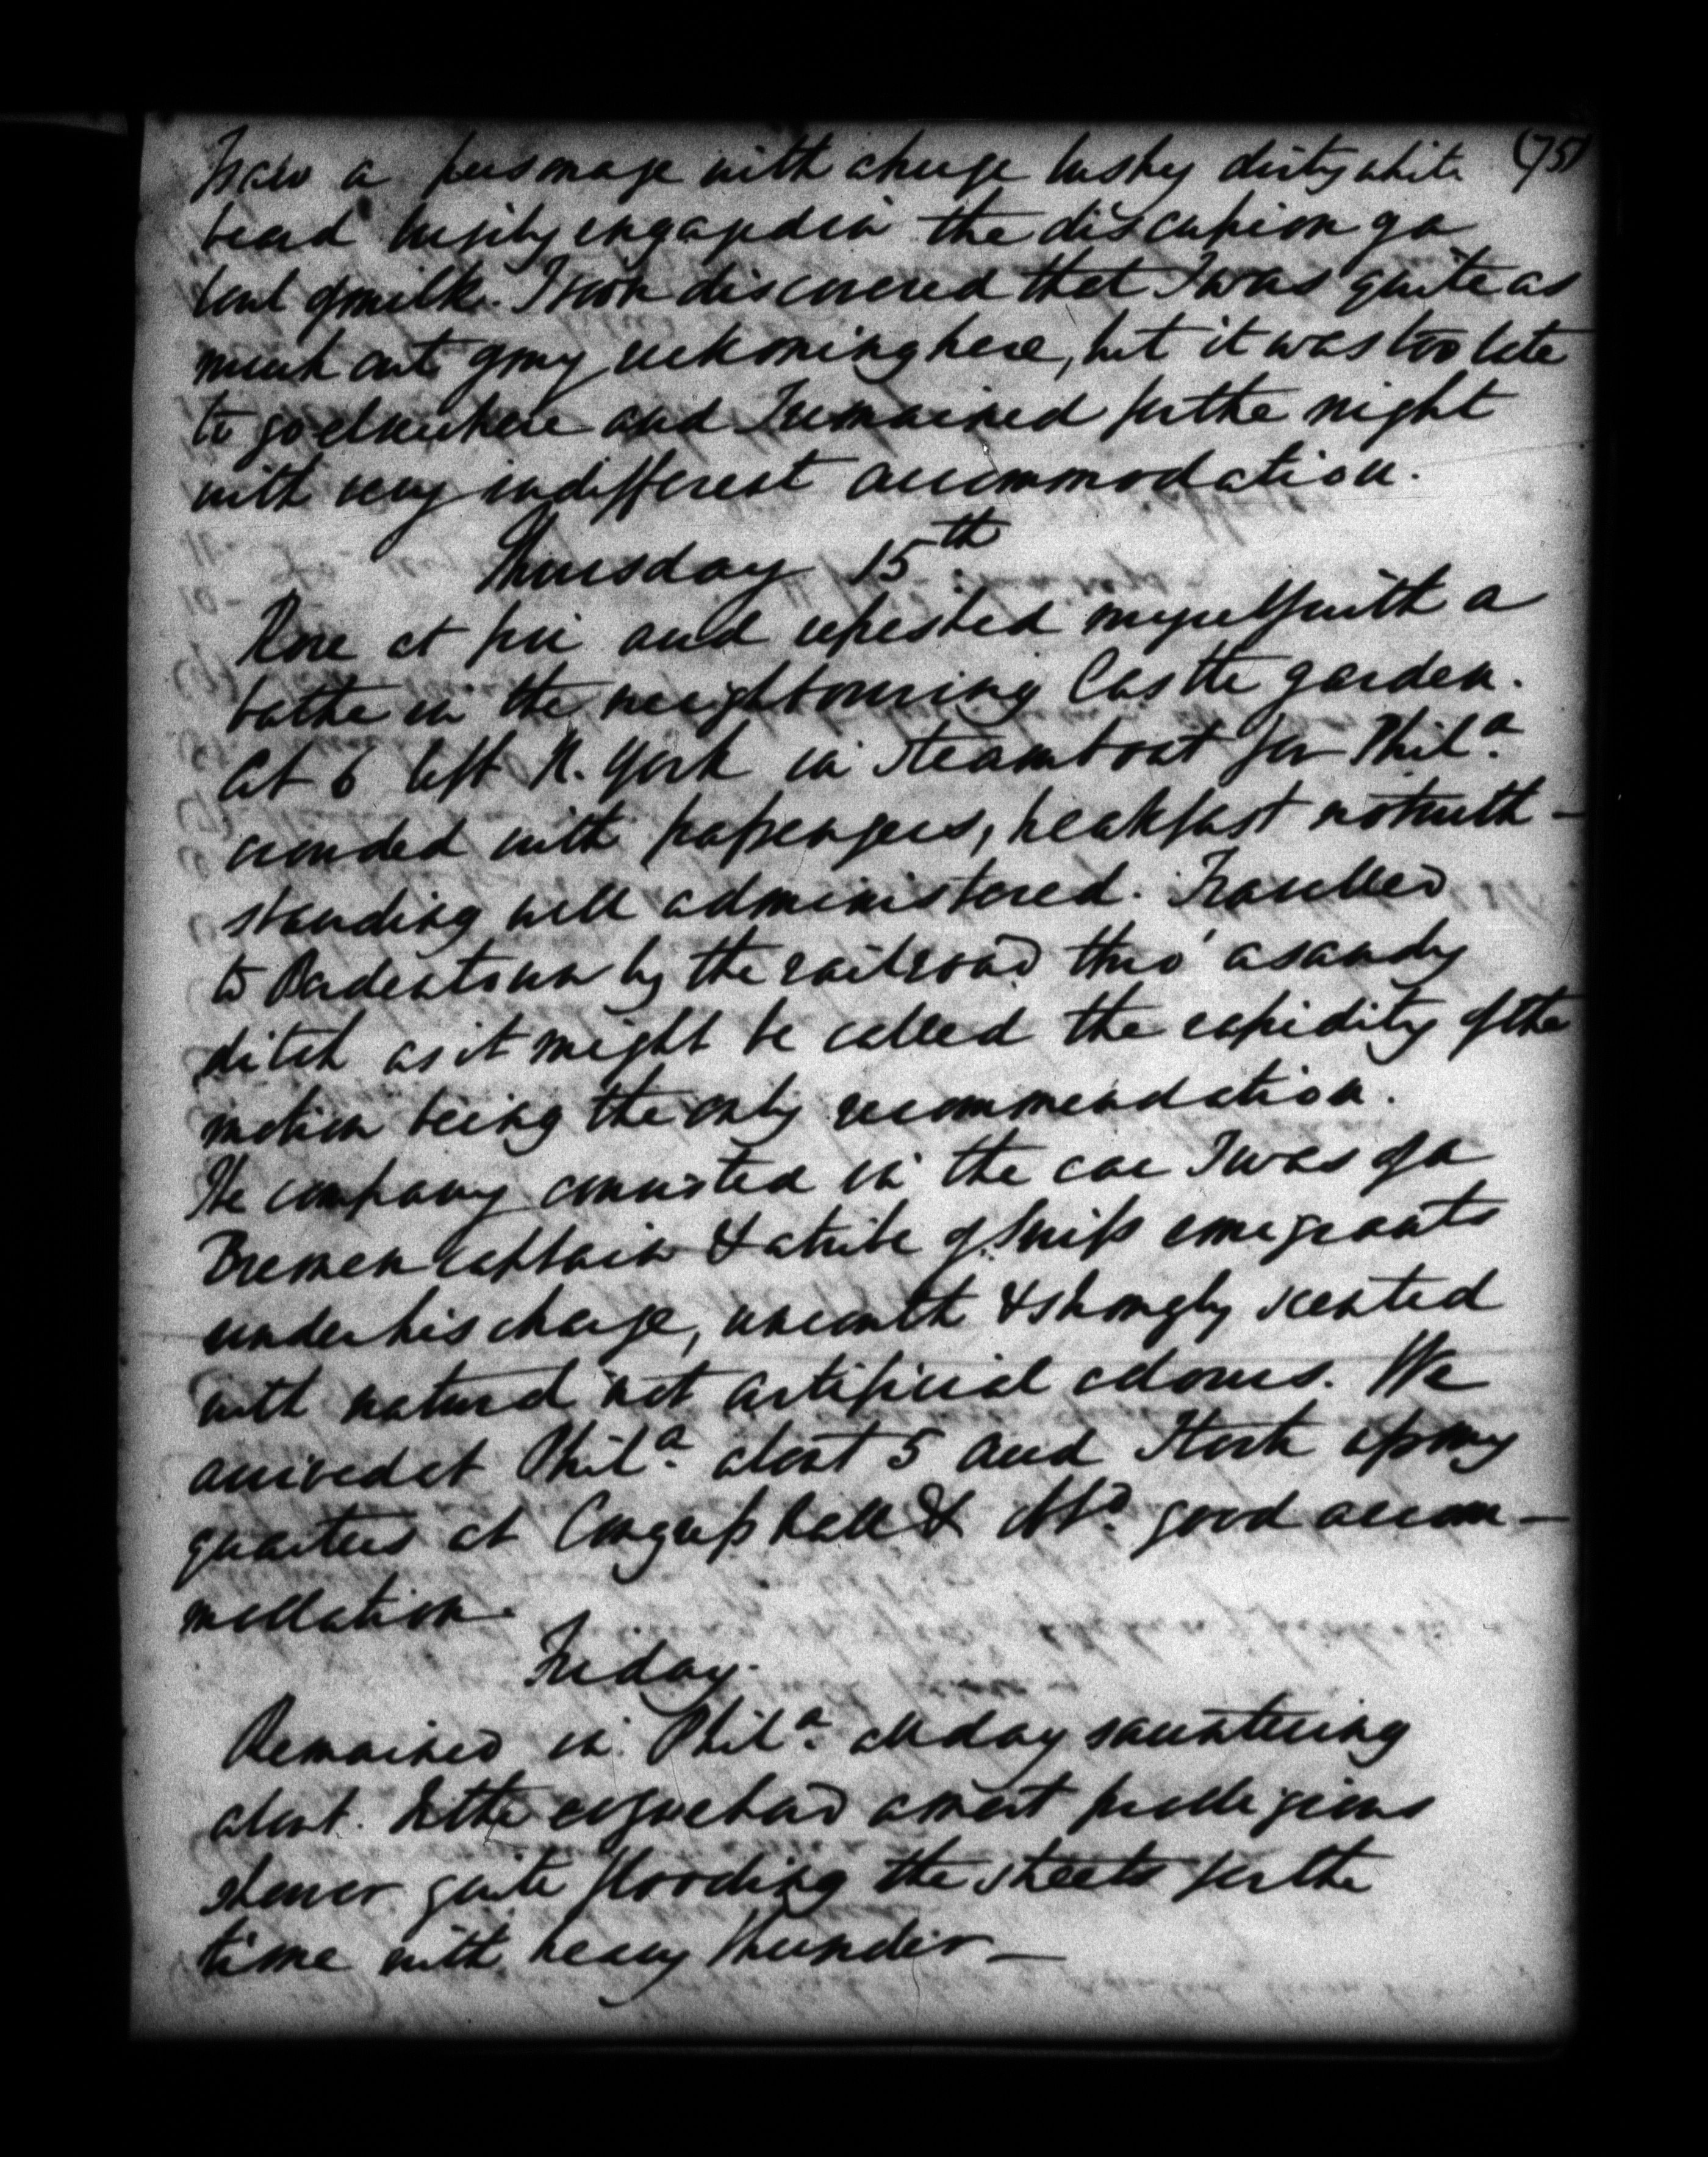 (75)
I saw a personage with a huge bushy dirty white
beard busily engaged in the discussion of a
bowl of milk. I soon discovered that I was quite as
much out of my reckoning here, but it was too late
to go elsewhere and I remained for the night
with very indifferent accommodation.
Thursday 15th
Rose at five and refreshed myself with a
bathe in the neighbouring Castle garden.
At 6 left N. York in steamboat for Phila.
crowded with passengers, breakfast notwith-
standing well administered. Travelled
to Bordentown by the railroad thro' a sandy
ditch as it might be called the rapidity of the
motion being the only recommendation.
The company consisted in the car I was of a
Bremen captain & a tribe of Swiss emigrants
under his charge, uncouth & strongly scented
with natural not artificial odours. We
arrived at Phila. about 5 and I took up my
quarters at Congress hall & good accom-
modation.
Friday.
Remained in Phila. all day sauntering
about. In the evg we had a most prodigious
shower quite flooding the streets for the
time with heavy thunder—